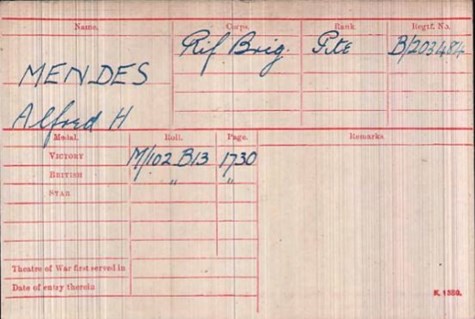 Name. Corps. Rank. Regtl. No.
Rif Brig. Pte B/203484
MENDES
Alfred H
Medal. Roll. Page. Remarks.
VICTORY M/102 B13 1730
BRITISH " "
STAR
Theatre of War first served in
Date of entry therein
K. 1380.